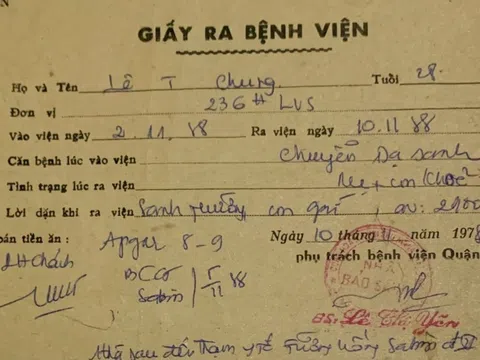 GIẤY RA BỆNH VIỆN
Họ và Tên Lê T Chung Tuổi 28
Đơn vị 236 LVS
Vào viện ngày 2.11.88 Ra viện ngày 10.11 88
Căn bệnh lúc vào viện Chuyển Dạ sanh
Tình trạng lúc ra viện Mẹ + con khoẻ
Lời dặn khi ra viện Sanh thường con gái, cn: 2900
toán tiền ăn : Apgar 8-9 Ngày 10 tháng 11 năm 197
BCG phụ trách bệnh viện Quận
Sabin 5/11 88 NHÀ BẢO S
BS: Lê Thị Yến
Nhớ sau đến trạm y tế uống Sabin